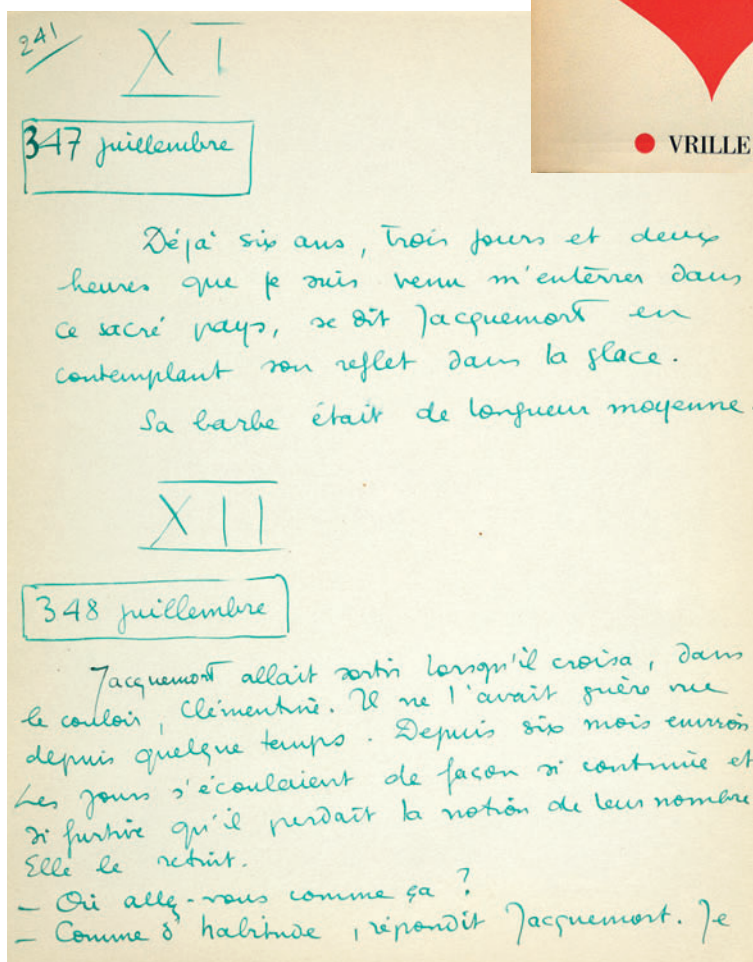 241
XI
347 juillembre
VRILLE
Déjà six ans, trois jours et deux
heures que je suis venu m'enterrer dans
ce sacré pays, se dit Jacquemort en
contemplant son reflet dans la glace.
Sa barbe était de longueur moyenne.
XII
348 juillembre
Jacquemort allait sortir lorsqu'il croisa, dans
le couloir, Clémentine. Il ne l'avait guère vue
depuis quelque temps. Depuis six mois environ
Les jours s'écoulaient de façon si continue et
si furtive qu'il perdait la notion de leur nombre
Elle le retint.
- Où allez-vous comme ça ?
- Comme d'habitude, répondit Jacquemort. Je